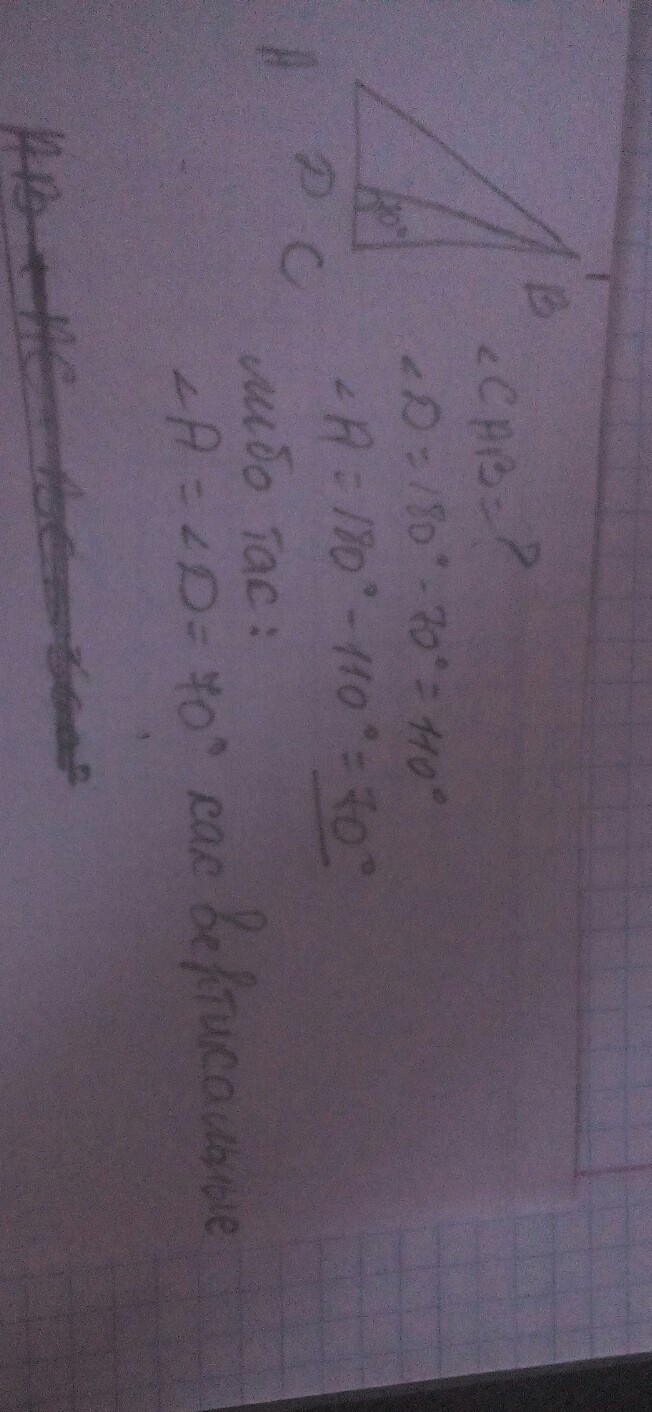 A
D
C
B
70°
∠CAB = ?
∠D = 180° - 70° = 110°
∠A = 180° - 110° = 70°
либо так:
∠A = ∠D = 70° как вертикальные